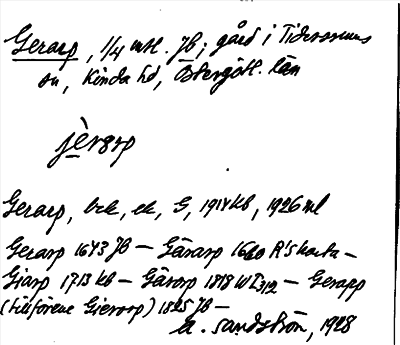 Gerarp, 1/4 mtl. JB; gård i Tidersrums
sn, Kinda hd, Östergötl. län
jèrarp
Gerarp, bek, ek, G, 1914 kb, 1926 ml
Gerarp 1643 JB – Gärarp 1620 R's karta –
Giarp 1713 kb – Gärarp 1818 WT312 – Gerapp
(tillförene Gierarp) 1825 JB –
A. Sandström, 1928